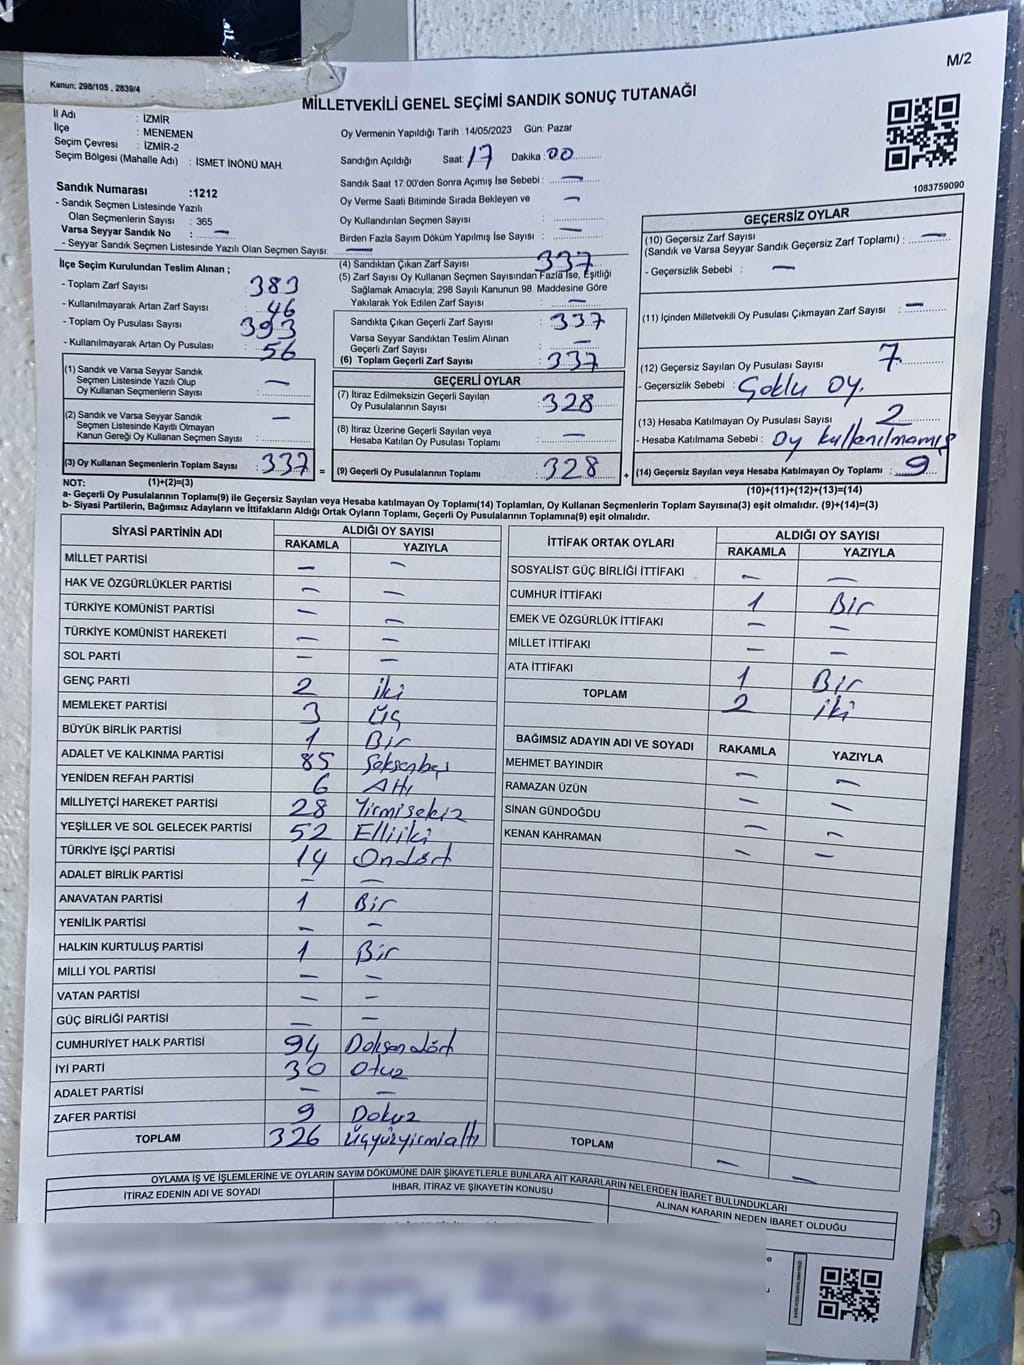 M/2
Kanun; 298/105 , 2839/4
MİLLETVEKİLİ GENEL SEÇİMİ SANDIK SONUÇ TUTANAĞI
İl Adı : İZMİR
İlçe : MENEMEN
Seçim Çevresi : İZMİR-2
Seçim Bölgesi (Mahalle Adı) : İSMET İNÖNÜ MAH.
Oy Vermenin Yapıldığı Tarih : 14/05/2023 Gün: Pazar
Sandığın Açıldığı Saat: 17 Dakika : 00
Sandık Saat 17:00'den Sonra Açımış İse Sebebi : —
Oy Verme Saati Bitiminde Sırada Bekleyen ve —
Oy Kullandırılan Seçmen Sayısı
Birden Fazla Sayım Döküm Yapılmış İse Sayısı : —
1083759090
Sandık Numarası :1212
- Sandık Seçmen Listesinde Yazılı
Olan Seçmenlerin Sayısı : 365
Varsa Seyyar Sandık No : —
- Seyyar Sandık Seçmen Listesinde Yazılı Olan Seçmen Sayısı: —
İlçe Seçim Kurulundan Teslim Alınan ;
- Toplam Zarf Sayısı 383
- Kullanılmayarak Artan Zarf Sayısı 46
- Toplam Oy Pusulası Sayısı 393
- Kullanılmayarak Artan Oy Pusulası 56
(1) Sandık ve Varsa Seyyar Sandık
Seçmen Listesinde Yazılı Olup
Oy Kullanan Seçmenlerin Sayısı : —
(2) Sandık ve Varsa Seyyar Sandık
Seçmen Listesinde Kayıtlı Olmayan
Kanun Gereği Oy Kullanan Seçmen Sayısı : —
(3) Oy Kullanan Seçmenlerin Toplam Sayısı : 337 =
(1)+(2)=(3)
(4) Sandıktan Çıkan Zarf Sayısı 337
(5) Zarf Sayısı Oy Kullanan Seçmen Sayısından Fazla İse, Eşitliği
Sağlamak Amacıyla; 298 Sayılı Kanunun 98. Maddesine Göre
Yakılarak Yok Edilen Zarf Sayısı : —
Sandıkta Çıkan Geçerli Zarf Sayısı : 337
Varsa Seyyar Sandıktan Teslim Alınan
Geçerli Zarf Sayısı : —
(6) Toplam Geçerli Zarf Sayısı : 337
GEÇERLİ OYLAR
(7) İtiraz Edilmeksizin Geçerli Sayılan
Oy Pusulalarının Sayısı : 328
(8) İtiraz Üzerine Geçerli Sayılan veya
Hesaba Katılan Oy Pusulası Toplamı : —
(9) Geçerli Oy Pusulalarının Toplamı : 328 +
GEÇERSİZ OYLAR
(10) Geçersiz Zarf Sayısı
(Sandık ve Varsa Seyyar Sandık Geçersiz Zarf Toplamı) : —
- Geçersizlik Sebebi : —
(11) İçinden Milletvekili Oy Pusulası Çıkmayan Zarf Sayısı : —
(12) Geçersiz Sayılan Oy Pusulası Sayısı : 7
- Geçersizlik Sebebi : Çoklu oy.
(13) Hesaba Katılmayan Oy Pusulası Sayısı : 2
- Hesaba Katılmama Sebebi : Oy kullanılmamış
(14) Geçersiz Sayılan veya Hesaba Katılmayan Oy Toplamı : 9
(10)+(11)+(12)+(13)=(14)
NOT:
a- Geçerli Oy Pusulalarının Toplamı(9) ile Geçersiz Sayılan veya Hesaba katılmayan Oy Toplamı(14) Toplamları, Oy Kullanan Seçmenlerin Toplam Sayısına(3) eşit olmalıdır. (9)+(14)=(3)
b- Siyasi Partilerin, Bağımsız Adayların ve İttifakların Aldığı Ortak Oyların Toplamı, Geçerli Oy Pusulalarının Toplamına(9) eşit olmalıdır.
SİYASİ PARTİNİN ADI ALDIĞI OY SAYISI
RAKAMLA YAZIYLA
MİLLET PARTİSİ — —
HAK VE ÖZGÜRLÜKLER PARTİSİ — —
TÜRKİYE KOMÜNİST PARTİSİ — —
TÜRKİYE KOMÜNİST HAREKETİ — —
SOL PARTİ — —
GENÇ PARTİ 2 iki
MEMLEKET PARTİSİ 3 Üç
BÜYÜK BİRLİK PARTİSİ 1 Bir
ADALET VE KALKINMA PARTİSİ 85 Seksenbeş
YENİDEN REFAH PARTİSİ 6 Altı
MİLLİYETÇİ HAREKET PARTİSİ 28 Yirmisekiz
YEŞİLLER VE SOL GELECEK PARTİSİ 52 Elliiki
TÜRKİYE İŞÇİ PARTİSİ 14 Ondört
ADALET BİRLİK PARTİSİ — —
ANAVATAN PARTİSİ 1 Bir
YENİLİK PARTİSİ — —
HALKIN KURTULUŞ PARTİSİ 1 Bir
MİLLİ YOL PARTİSİ — —
VATAN PARTİSİ — —
GÜÇ BİRLİĞİ PARTİSİ — —
CUMHURİYET HALK PARTİSİ 94 Doksandört
İYİ PARTİ 30 Otuz
ADALET PARTİSİ — —
ZAFER PARTİSİ 9 Dokuz
TOPLAM 326 Üçyüzyirmialtı
İTTİFAK ORTAK OYLARI ALDIĞI OY SAYISI
RAKAMLA YAZIYLA
SOSYALİST GÜÇ BİRLİĞİ İTTİFAKI — —
CUMHUR İTTİFAKI 1 Bir
EMEK VE ÖZGÜRLÜK İTTİFAKI — —
MİLLET İTTİFAKI — —
ATA İTTİFAKI 1 Bir
TOPLAM 2 iki
BAĞIMSIZ ADAYIN ADI VE SOYADI RAKAMLA YAZIYLA
MEHMET BAYINDIR — —
RAMAZAN ÜZÜN — —
SİNAN GÜNDOĞDU — —
KENAN KAHRAMAN — —
TOPLAM — —
OYLAMA İŞ VE İŞLEMLERİNE VE OYLARIN SAYIM DÖKÜMÜNE DAİR ŞİKAYETLERLE BUNLARA AİT KARARLARIN NELERDEN İBARET BULUNDUKLARI
İTİRAZ EDENİN ADI VE SOYADI İHBAR, İTİRAZ VE ŞİKAYETİN KONUSU ALINAN KARARIN NEDEN İBARET OLDUĞU